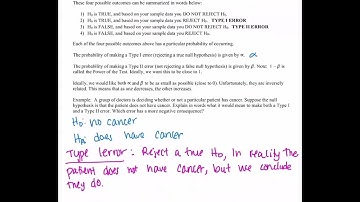 These four possible outcomes can be summarized in words below:
1) H₀ is TRUE, and based on your sample data you DO NOT REJECT H₀.
2) H₀ is TRUE, and based on your sample data you REJECT H₀. TYPE I ERROR
3) H₀ is FALSE, and based on your sample data you DO NOT REJECT H₀. TYPE II ERROR
4) H₀ is FALSE, and based on your sample data you REJECT H₀.
Each of the four possible outcomes above has a particular probability of occurring:
The probability of making a Type I error (rejecting a true null hypothesis) is given by α. α
The probability of making a Type II error (not rejecting a false null hypothesis) is given by β. Note: 1 − β is
called the Power of the Test. Ideally, we would want this to be close to 1.
Ideally, we would like both α and β to be as small as possible (close to 0). Unfortunately, they are inversely
related. This means that as one decreases, the other increases.
Example: A group of doctors is deciding whether or not a particular patient has cancer. Suppose the null
hypothesis is that the patient does not have cancer. Explain in words what it would mean to make both a Type I
and a Type II error. Which error has a more negative consequence?
H₀: no cancer
Hₐ: does have cancer
Type I error: Reject a true H₀, In reality the
patient does not have cancer, but we conclude
they do.